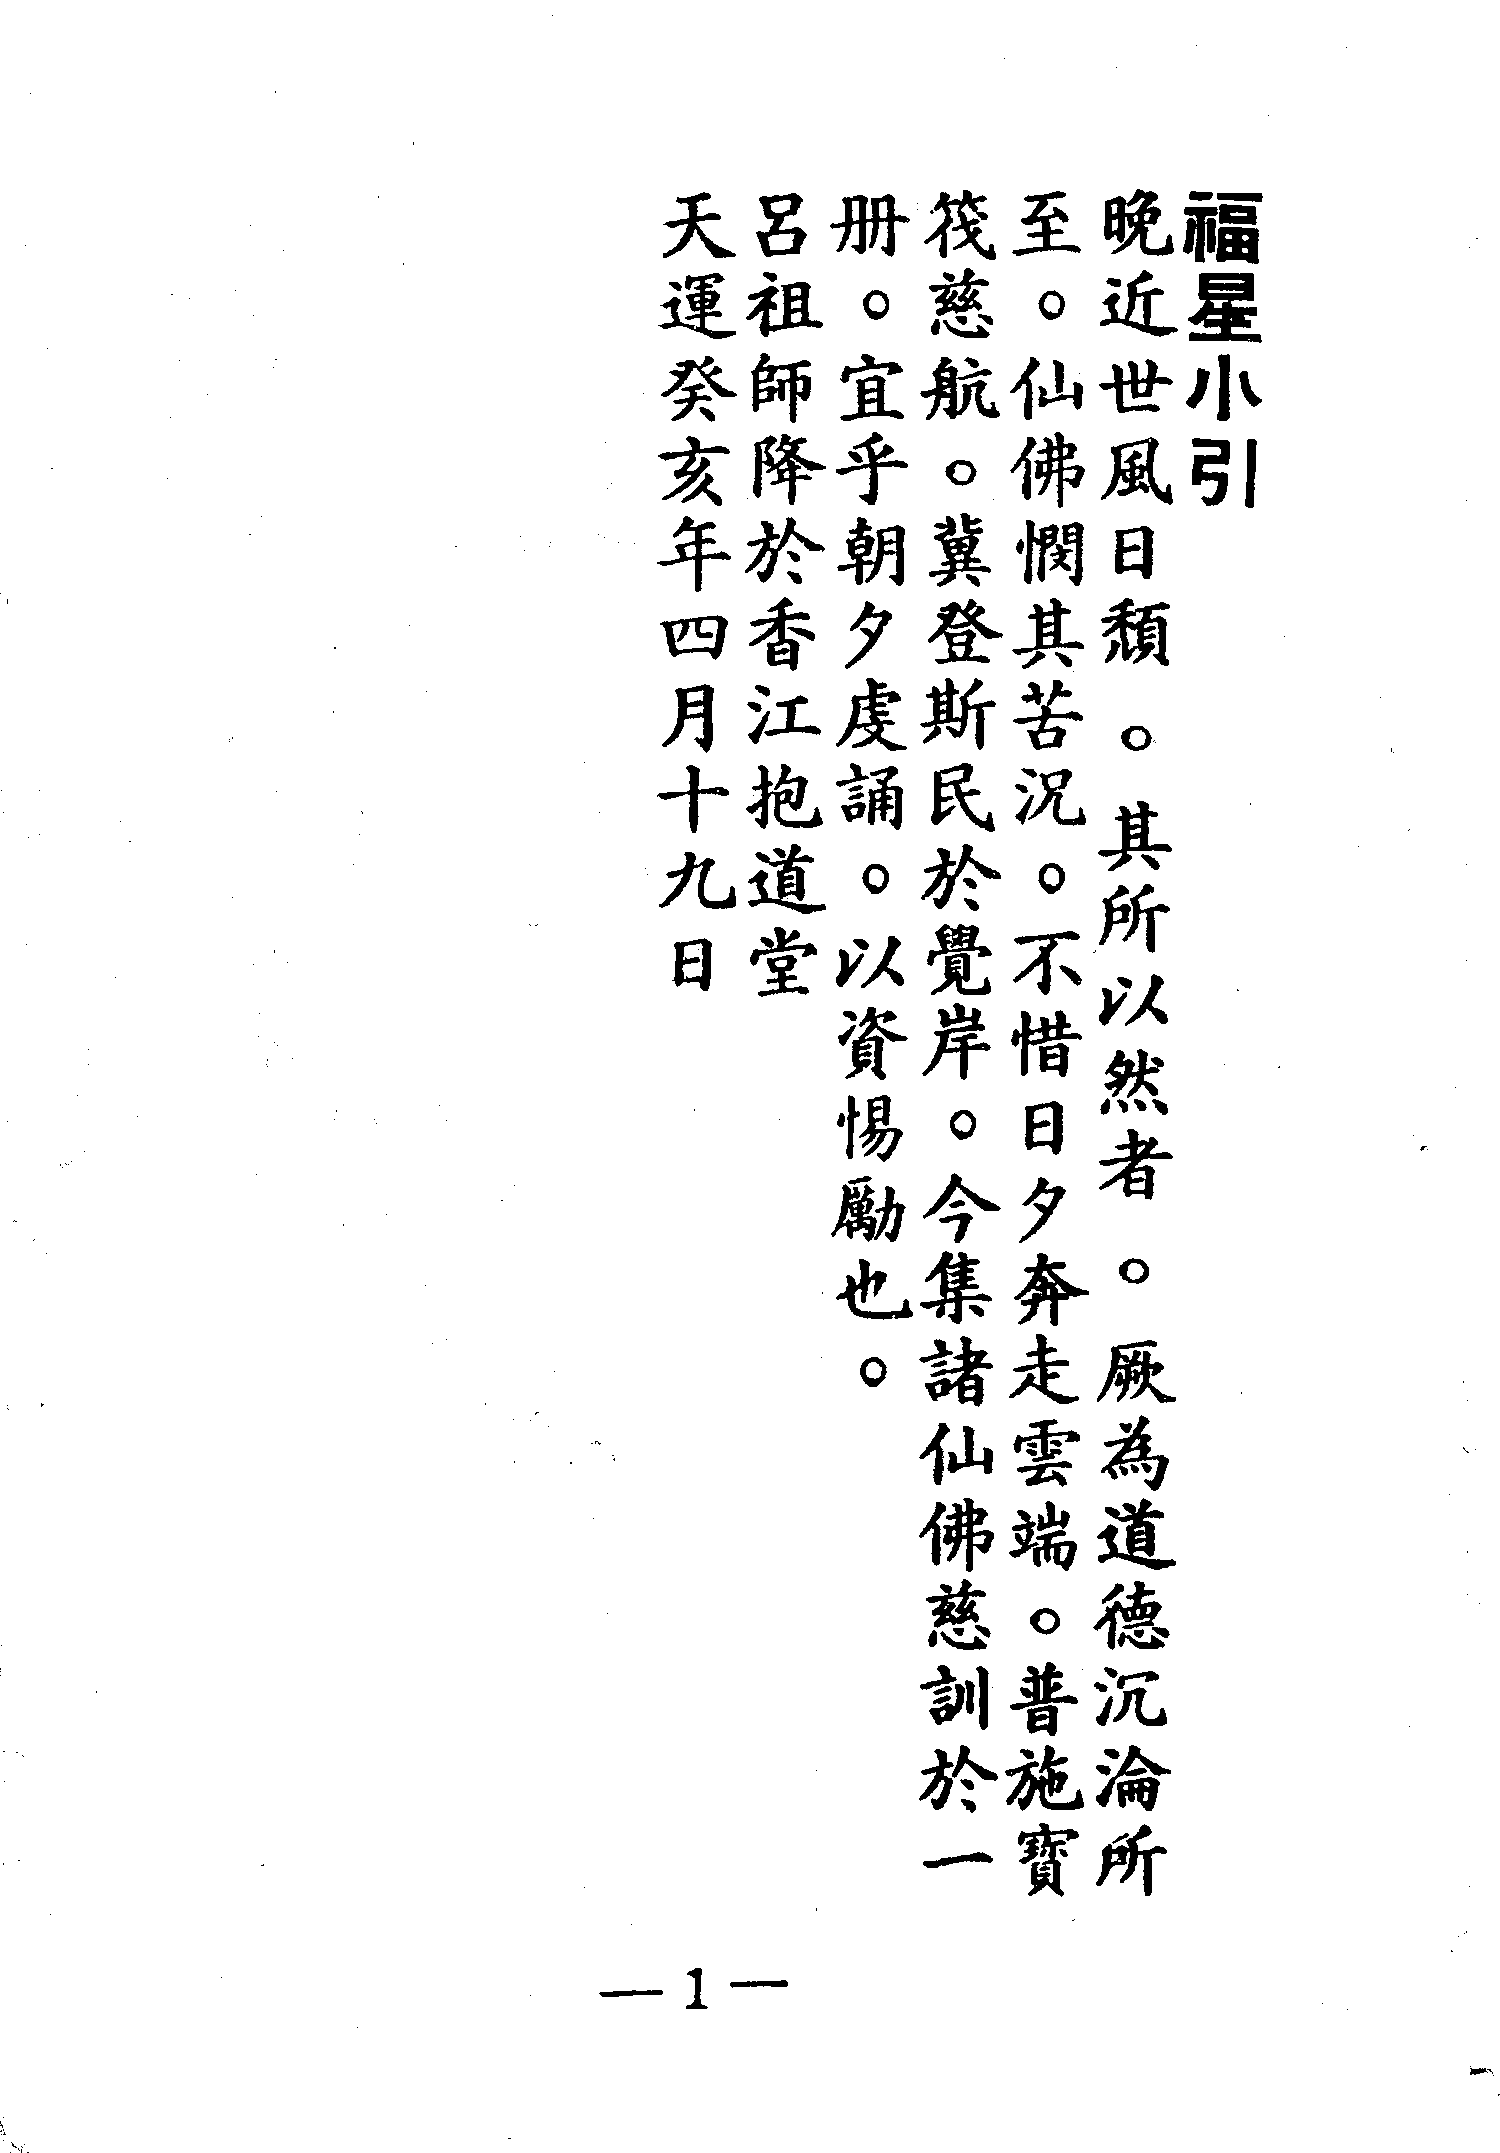 福星小引
晚近世風日頹。其所以然者。厥為道德沉淪所
至。仙佛憫其苦況。不惜日夕奔走雲端。普施寶
筏慈航。冀登斯民於覺岸。今集諸仙佛慈訓於一
册。宜乎朝夕虔誦。以資惕勵也。
呂祖師降於香江抱道堂
天運癸亥年四月十九日
—1—